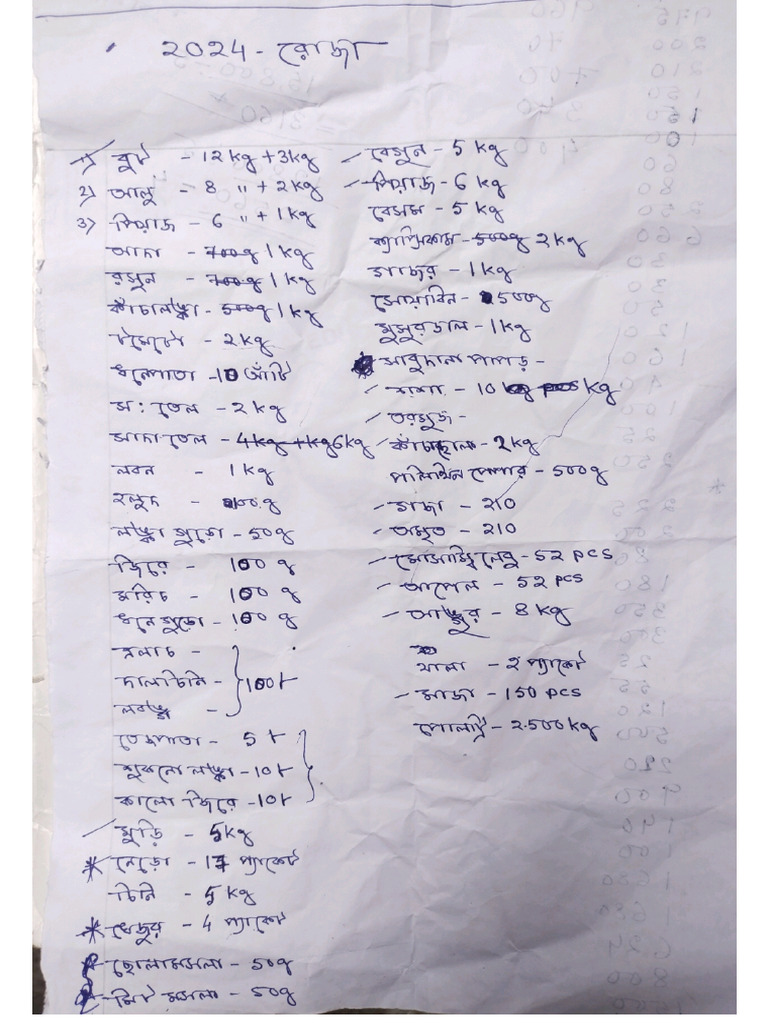 2024 - রোজা
1) বুট - 12 kg + 3 kg
2) আলু - 8 " + 2 kg
3) পিয়াজ - 6 " + 1 kg
আদা - 700g 1 kg
রসুন - 700g 1 kg
কাঁচালঙ্কা - 500g 1 kg
টমেটো - 2 kg
ধনেপাতা - 10 আঁটি
স: তেল - 2 kg
সাদা তেল - 4kg + 1kg 6kg
লবন - 1 kg
হলুদ - 100 g
লঙ্কা গুড়ো - 50g
জিরে - 100 g
মরিচ - 100 g
ধনে গুড়ো - 100 g
এলাচ -
দালচিনি - 100৳
লবঙ্গ -
তেজপাতা - 5 ৳
শুকনো লঙ্কা - 10৳
কালো জিরে - 10৳
মুড়ি - 5 kg
* নেড়ো - 17 প্যাকেট
চিনি - 5 kg
* খেজুর - 4 প্যাকেট
ছোলা মসলা - 50g
মিট মসলা - 50g
বেগুন - 5 kg
পিয়াজ - 6 kg
বেসম - 5 kg
ক্যাপ্সিকাম - 500g 2 kg
গাজর - 1 kg
সোয়াবিন - 500g
মুসুর ডাল - 1 kg
সাবুদানা পাপড় -
শশা - 10 kg pcs kg
তরমুজ -
কাঁচাছোলা - 2 kg
পলিথিন পেপার - 500g
- 210
- 210
মোসাম্বি লেবু - 52 pcs
আপেল - 52 pcs
আঙ্গুর - 8 kg
থালা - ২ প্যাকেট
- 150 pcs
পোলট্রি - 2.500 kg